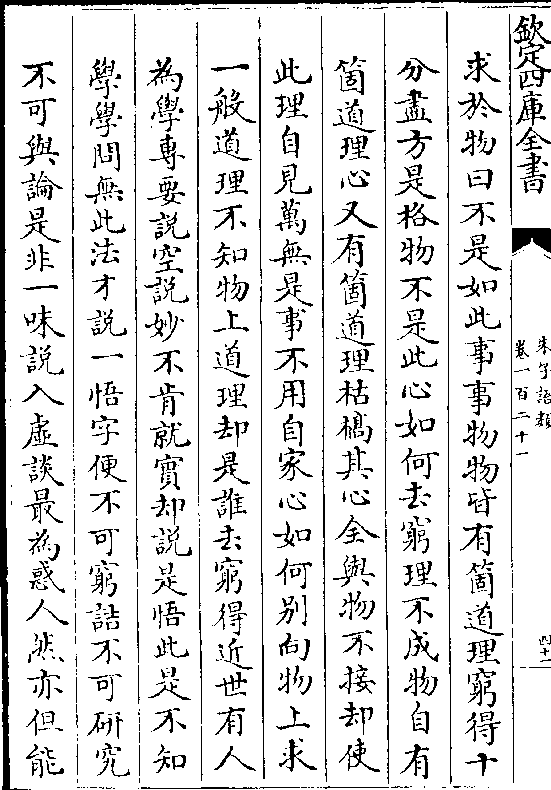 欽定四庫全書
朱子語類
卷一百二十一
四十一
求於物曰不是如此事事物物皆有箇道理窮得十
分盡方是格物不是此心如何去窮理不成物自有
箇道理心又有箇道理枯槁其心全與物不接却使
此理自見萬無是事不用自家心如何別向物上求
一般道理不知物上道理却是誰去窮得近世有人
為學專要説空説妙不肯就實却説是悟此是不知
學學問無此法才説一悟字便不可窮詰不可研究
不可與論是非一味説入虛談最為惑人然亦但能